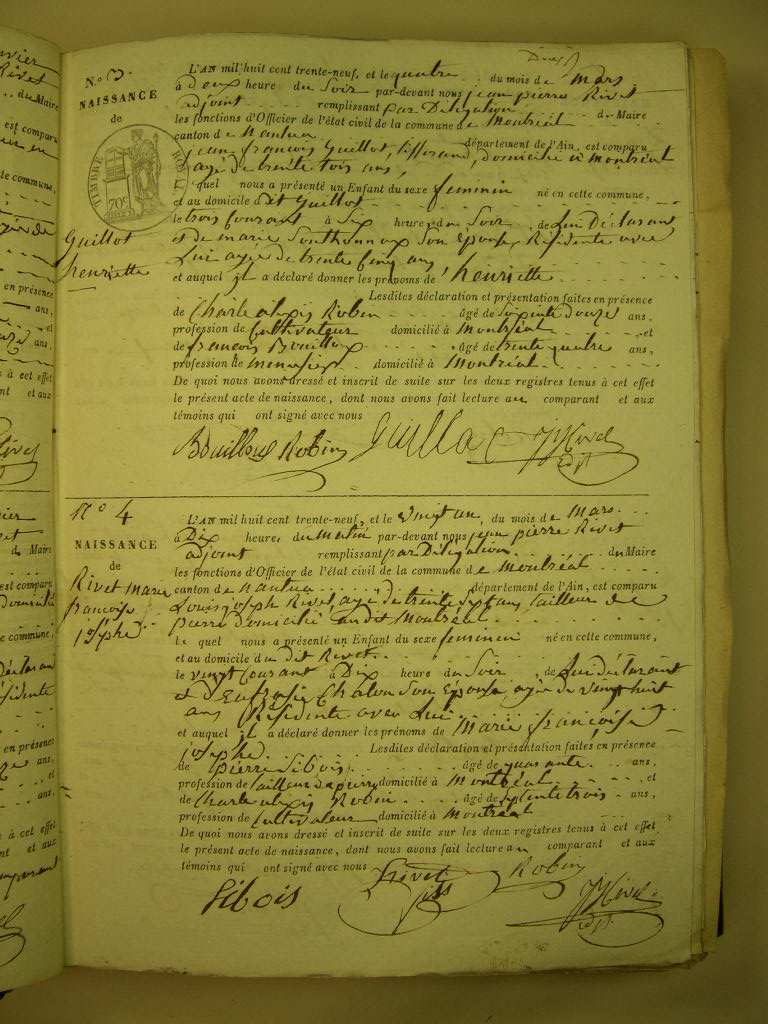 N.º 3.
NAISSANCE
de
Guillot
henriette
TIMBRE
70c
L'AN mil huit cent trente-neuf, et le quatre du mois de Mars
à Deux heure du Soir par-devant nous jean pierre Rivet
adjoint remplissant par Délégation du Maire
les fonctions d'Officier de l'état civil de la commune de Montréal
canton de Nantua département de l'Ain, est comparu
jean françois Guillot, tisserand, domicilié à Montréal
agé de trente trois ans,
le quel nous a présenté un Enfant du sexe feminin né en cette commune,
et au domicile dit Guillot
le trois Courant à Six heure du Soir, de Lui Déclarant
et de marie Southonnax Son Epouse, Résidente avec
Lui agée de trente Cinq ans
et auquel il a déclaré donner les prénoms de henriette
Lesdites déclaration et présentation faites en présence
de Charle alexis Robin âgé de Soixante douze ans,
profession de Cultivateur domicilié à Montréal et
de françois Bouilloux âgé de trente quatre ans,
profession de menuisier domicilié à Montréal
De quoi nous avons dressé et inscrit de suite sur les deux registres tenus à cet effet
le présent acte de naissance, dont nous avons fait lecture au comparant et aux
témoins qui ont signé avec nous
Bouilloux Robin Guillot JP Rivet
adjt
N.º 4
NAISSANCE
de
Rivet Marie
françoise
josephe
L'AN mil huit cent trente-neuf, et le vingt un, du mois de Mars
à Dix heure du Matin par-devant nous jean pierre Rivet
adjoint remplissant par Délégation du Maire
les fonctions d'Officier de l'état civil de la commune de Montréal
canton de Nantua département de l'Ain, est comparu
Louis joseph Rivet, agé de trente Sept ans, tailleur de
pierre domicilié audit Montréal
le quel nous a présenté un Enfant du sexe feminin né en cette commune,
et au domicile du dit Rivet
le vingt Courant à Dix heure du Soir, de Lui déclarant
et d'Eufrasie Chalon Son Epouse agée de vingt huit
ans Résidente avec Lui
et auquel il a déclaré donner les prénoms de Marie françoise
josephe Lesdites déclaration et présentation faites en présence
de pierre Sibois âgé de quarante ans,
profession de tailleur de pierre domicilié à Montréal et
de Charle alexis Robin âgé de Septente trois ans,
profession de Cultivateur domicilié à Montréal
De quoi nous avons dressé et inscrit de suite sur les deux registres tenus à cet effet
le présent acte de naissance, dont nous avons fait lecture au comparant et aux
témoins qui ont signé avec nous
Sibois Rivet fils Robin JP Rivet
adjt